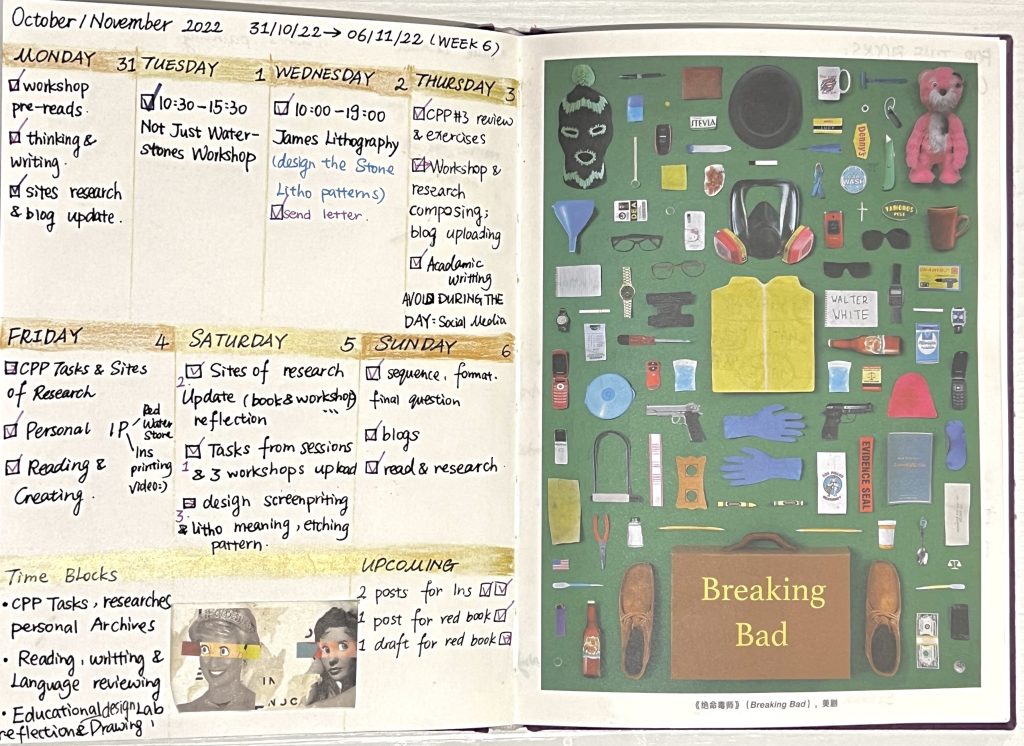 October/November 2022 31/10/22→06/11/22 (WEEK 6)
MONDAY 31
workshop
pre-reads.
thinking &
writing.
sites research
& blog update.
TUESDAY 1
10:30-15:30
Not Just Water-
stones Workshop
WEDNESDAY 2
10:00-19:00
James Lithography
(design the Stone
Litho patterns)
send letter.
THURSDAY 3
CPP#3 review
& exercises
Workshop &
research
composing;
blog uploading
Acadamic
writting
AVOID DURING THE
DAY: Social Media
FRIDAY 4
CPP Tasks & Sites
of Research
Personal IP
Red
Water
Store
Ins
printing
video:)
Reading &
Creating.
SATURDAY 5
Sites of research
2.
Update (book & workshop)
reflection
Tasks from sessions
1
& 3 workshops upload
design screenpriting
3.
& litho meaning, etching
pattern.
SUNDAY 6
sequence, format.
final question
blogs
read & research.
Time Blocks
• CPP Tasks, researches
personal Archives
• Reading, writting &
Language reviewing
• Educational design Lab
reflection & Drawing,
UPCOMING
2 posts for Ins
1 post for red book
1 draft for red book
STEVIA
Denny's
WASH
DEA
VAMONOS
PEST
WALTER
WHITE
EVIDENCE SEAL
LOS POLLOS
Breaking
Bad
《绝命毒师》(Breaking Bad)，美剧